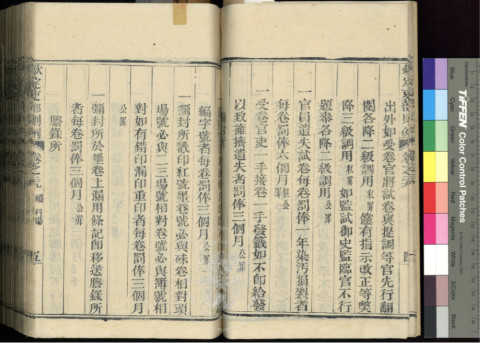 出外如受卷官將試卷與提調等官先行翻
閱各降二級調用公罪 儻有指示改正等獘
降三級調用私罪 如監試御史監臨官不行
題叅各降二級調用公罪
一官員遺失試卷每卷罰俸一年染污損裂者
每卷罰俸六個月公罪
一受卷官吏一手接卷一手發籤如不卽給發
以致擁擠遺失者罰俸三個月公罪
編字號者每卷罰俸三個月公罪
一彌封所戳印紅號墨卷號必與硃卷相對頭
場號必與二三場號相對卷號必與簿號相
對如有錯印漏印重印者每卷罰俸三個月
公罪
一彌封所於墨卷上漏用條記卽移送謄錄所
者每卷罰俸三個月公罪
謄錄所
欽定吏部則例 卷之
五
TIFFEN Color Control Patches
Blue
Cyan
Green
Yellow
Red
Magenta
White
3/Color
Black